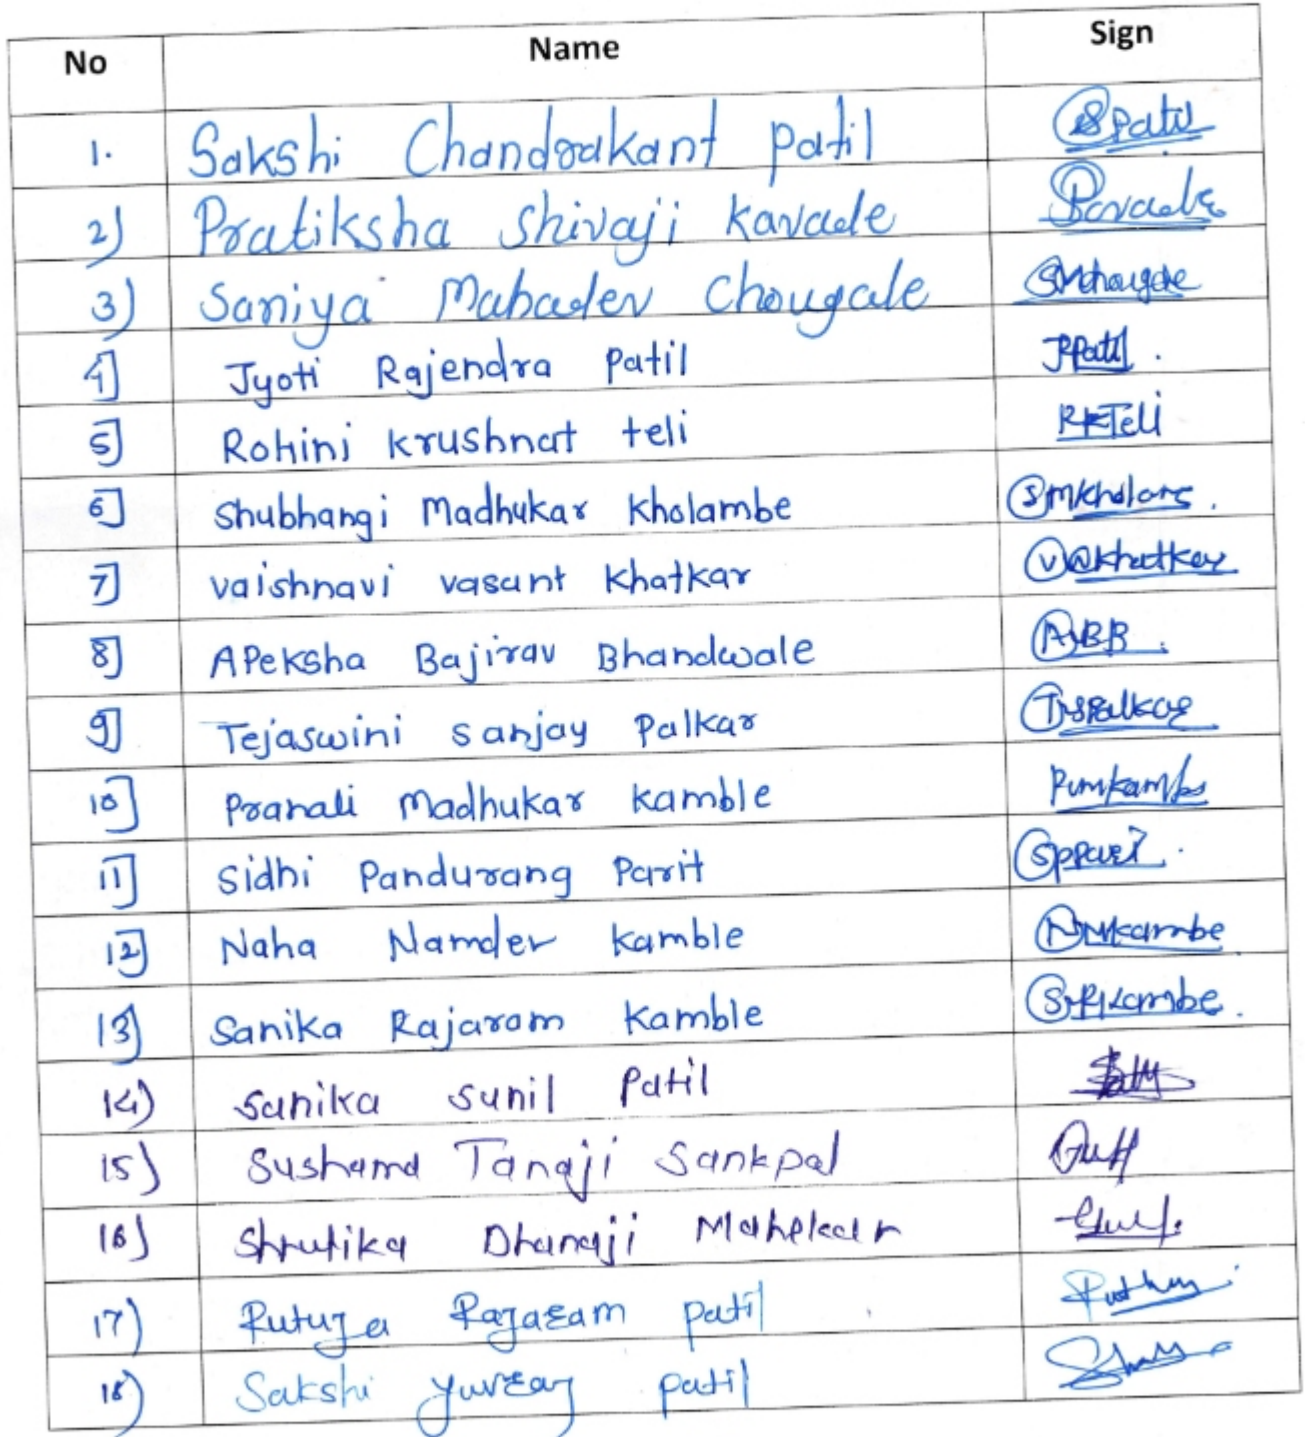 No Name Sign
1. Sakshi Chandrakant Patil Spatil
2) Pratiksha Shivaji Kavade
3) Saniya Mahadev Chougale SMchougale
4] Jyoti Rajendra Patil JRPatil.
5] Rohini Krushnat teli RKTeli
6] Shubhangi Madhukar Kholambe
7] vaishnavi vasant Khatkar
8] APeksha Bajirav Bhandwale ABB.
9] Tejaswini sanjay Palkar
10] Pranali Madhukar Kamble
11] Sidhi Pandurang Parit
12] Naha Namdev Kamble
13] Sanika Rajaram Kamble
14) Sanika Sunil Patil
15) Sushama Tanaji Sankpal
16) Shrutika Dhanaji Mahekar
17) Rutuja Rajaram patil
18) Sakshi yuvraj patil